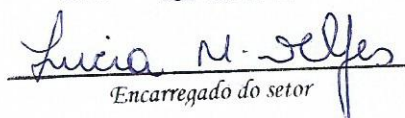 Lucia M.
Encarregado do setor